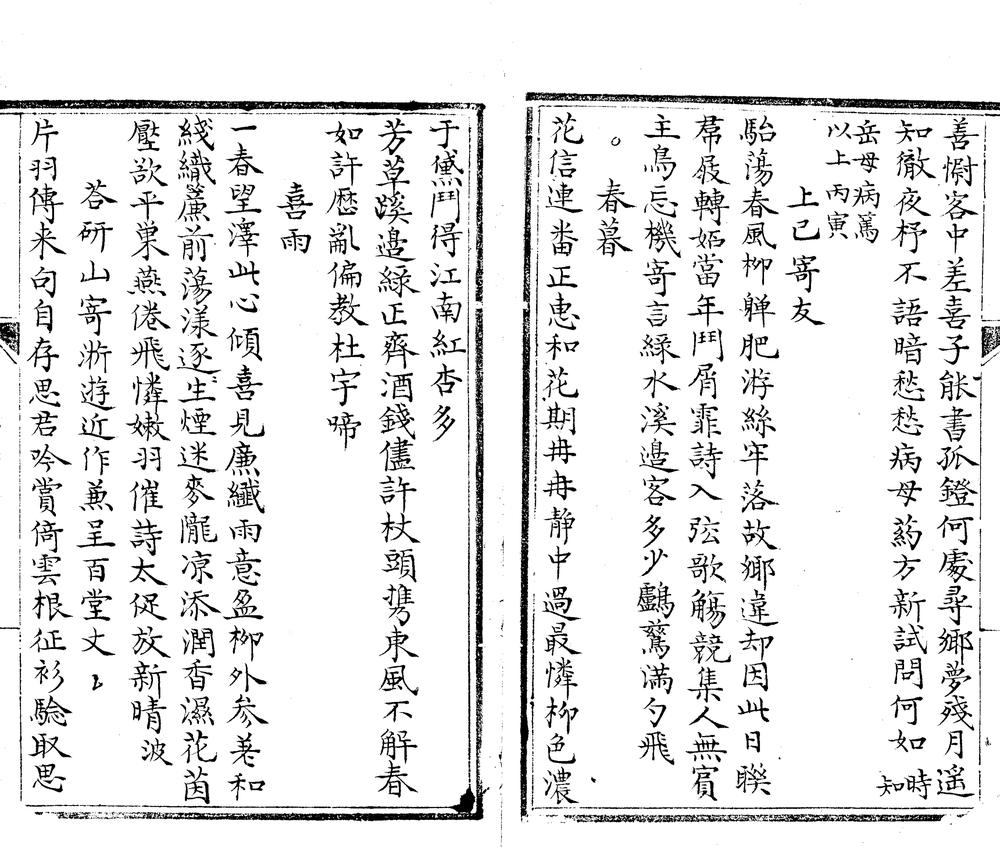 善懰客中差喜子能書孤鐙何處尋鄉夢殘月遥
知徹夜杼不語暗愁愁病母葯方新試問何如時知
岳母病篤
以上丙寅
上巳寄友
駘蕩春風柳嚲肥游絲牢落故鄉違却因此日聯
屐轉姬當年鬥屑霏詩入弦歌觴競集人無賓
主鳥忘機寄言綠水溪邊客多少鸕鶿滿勺飛
春暮
花信連番正恵和花期冉冉静中過最憐柳色濃
于黛鬥得江南紅杏多
芳草蹊邉緑正齊酒錢儘許杖頭携東風不解春
如許歷亂偏教杜宇啼
喜雨
一春望澤此心傾喜見廉纖雨意盈柳外参差和
綫織簾前蕩漾逐生煙迷麥隴凉添潤香濕花茵
壓欲平巢燕倦飛憐嫩羽催詩太促放新晴波
荅研山寄浙遊近作兼呈百堂丈
片羽傳来句自存思君吟賞倚雲根征衫騐取思